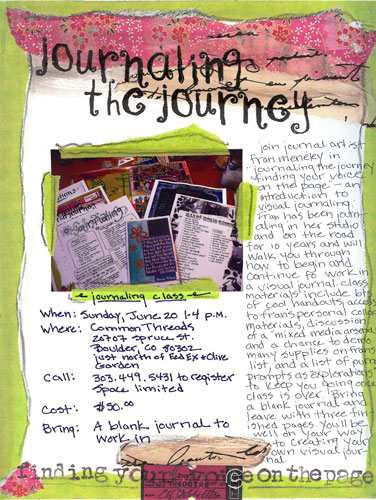 journaling
the journey
join journal artist
Fran meneley in
"journaling the journey
finding your voice
on the page" - an
introduction to
visual journaling.
Fran has been jour-
naling in her studio
and on the road
for 10 years and will
walk you through
how to begin and
continue to work in
a visual journal. class
materials include bits
of cool handouts, access
to frans personal collage
materials, discussion
of a "mixed media arsenal"
and a chance to demo
many supplies on frans
list, and a list of journal
prompts as explorations
to keep you going once
class is over. Bring
a blank journal and
leave with three fin-
ished pages. You'll be
well on your way
to creating your
own visual jour-
nal.
journaling class
When: Sunday, June 20 1-4 p.m.
Where: Common Threads
2707 Spruce St.
Boulder, CO 80302
just north of Fed Ex & Olive
Garden
Call: 303.449.5431 to register
Space limited
Cost: $50.00
Bring: A blank journal to
work in
finding your voice on the page